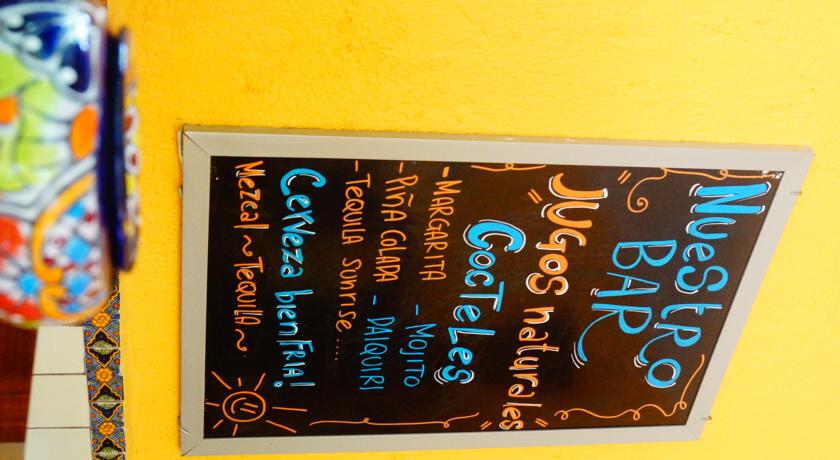 NuesTRO
BAR
"JUGOS naturales"
CocTeLes
- MARGARITA - MOJITO
- PIÑA COLADA - DAIQUIRI
- TEQUILA SUNRISE ....
Cerveza bien FRIA!
Mezcal ~ TEQUILA ~